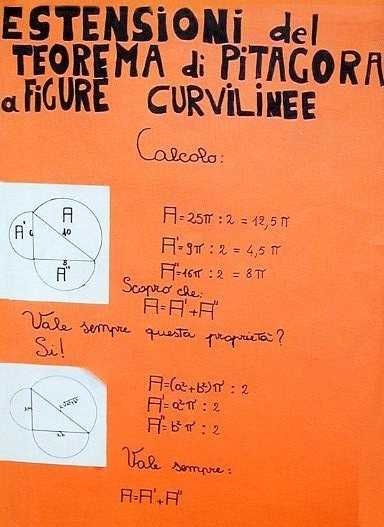 ESTENSIONI del
TEOREMA di PITAGORA
a FIGURE CURVILINEE
Calcolo:
A
A'
6
10
8
A''
A = 25π : 2 = 12,5 π
A' = 9π : 2 = 4,5 π
A'' = 16π : 2 = 8π
Scopro che:
A = A' + A''
Vale sempre questa proprietà?
Sì!
2a
2b
A = (a² + b²)π : 2
A' = a²π : 2
A'' = b²π : 2
Vale sempre:
A = A' + A''